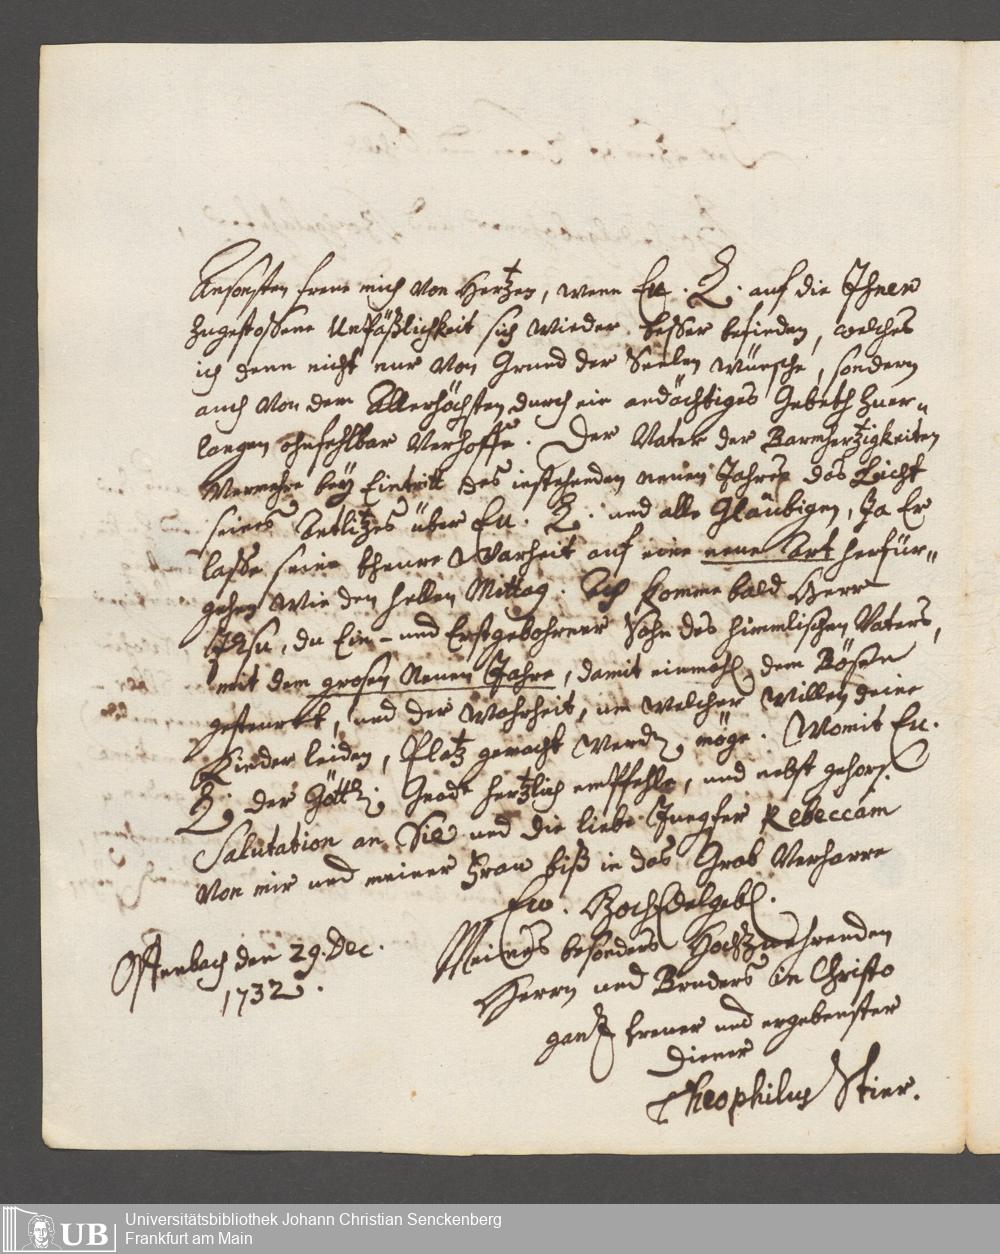 Ansonsten freue mich von Hertzen, wenn Eu. L. auf die Ihnen
zugestossene Unpäßlichkeit sich wieder besser befinden, welches
ich denn nicht nur von Grund der Seelen wünsche, sondern
auch von dem Allerhöchsten durch ein andächtiges Gebeth zu er-
langen ohnfehlbar verhoffe. Der Vater der Barmhertzigkeiten
vermehre bey Eintritt des instehenden neuen Jahres das Licht
seines Antlitzes über Eu. L. und alle Gläubigen, Ja Er
lasse seine theure Warheit auf eine neue Art herfür-
gehen wie den hellen Mittag. Ach komme bald Herr
Jesu, du Ein- und Erstgebohrner Sohn des himmlischen Vaters,
mit dem grosen Neuen Jahre, damit einmahl dem Bösen
gesteurt, und der Wahrheit, um welcher Willen deine
Kinder leiden, Platz gemacht werden möge. Womit Eu.
L. der Göttl. Gnade hertzlich empfehle, und nebst gehors.
Salutation an Sie und die liebe Jungfer Rebeccam
von mir und meiner Frau biß in das Grab verharre
Ew. HochEdelgebl.
Meines besonders Hochzuehrenden
Herrn und Bruders in Christo
Offenbach den 29. Dec.
1732.
gantz treuer und ergebenster
Diener
Theophilus Stier.
UB
Universitätsbibliothek Johann Christian Senckenberg
Frankfurt am Main